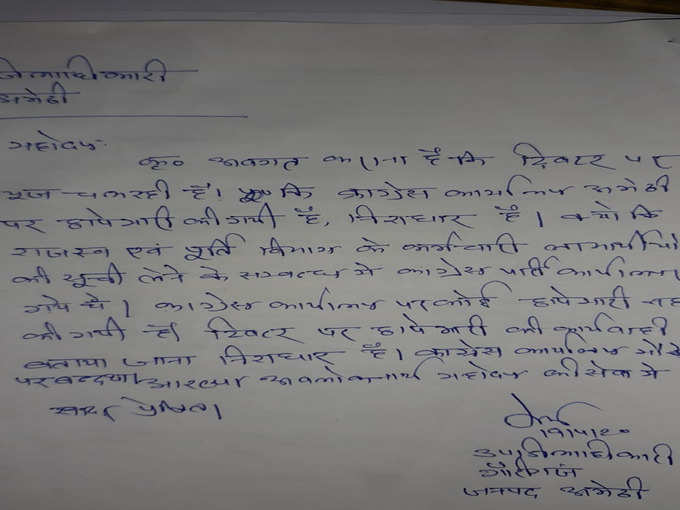 जिलाधिकारी
अमेठी
महोदय,
कृ० अवगत कराना है कि ट्विटर पर
चल रही है। कि कांग्रेस कार्यालय अमेठी
पर छापेमारी की गयी है, निराधार है। क्यो कि
राजस्व एवं पूर्ति विभाग के कर्मचारी लाभार्थियो
की सूची लेने के सम्बन्ध मे कांग्रेस पार्टी कार्यालय
गये थे। कांग्रेस कार्यालय पर कोई छापेमारी नह
की गयी है। ट्विटर पर छापेमारी की कार्यवाही
बताया जाना निराधार है। कांग्रेस कार्यालय गौरी
पर आख्या अवलोकनार्थ महोदय की सेवा मे
सादर प्रेषित।
उपजिलाधिकारी
गौरीगंज
जनपद अमेठी